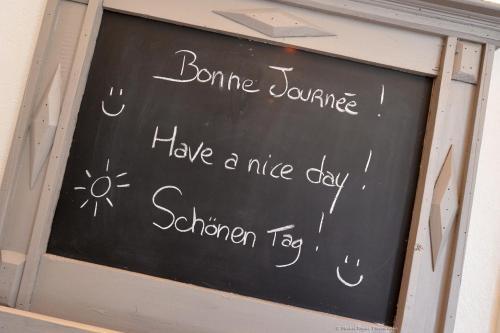 Bonne Journée !
Have a nice day !
Schönen Tag !